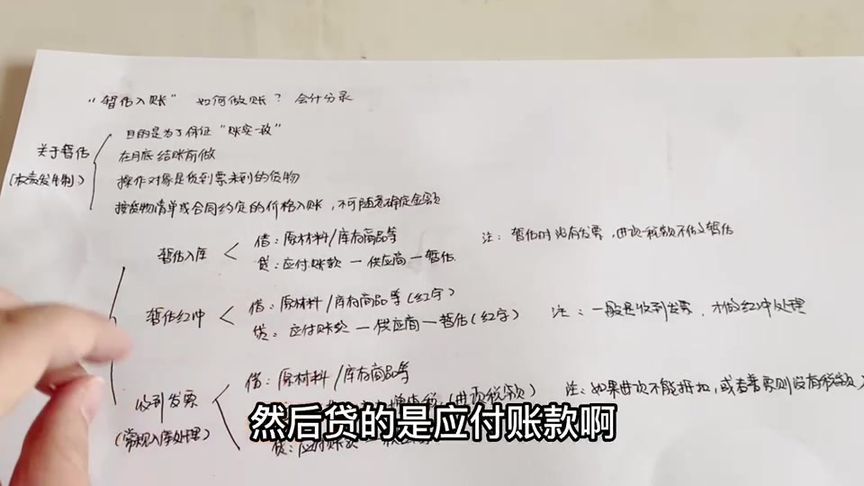 “暂估入账” 如何做账？ 会计分录
关于暂估
(权责发生制)
目的是为了保证“账实一致”
在月底结账前做
操作对象是货到票未到的货物
按货物清单或合同约定的价格入账，不可随意确定金额
暂估入库
借：原材料/库存商品等
贷：应付账款—供应商—暂估
注：暂估时没有发票，进项税额不做暂估
暂估红冲
借：原材料/库存商品等(红字)
贷：应付账款—供应商—暂估(红字)
注：一般是收到发票，才做红冲处理
收到发票
(常规入库处理)
借：原材料/库存商品等
(进项税额)
贷：应付账款
注：如果进项不能抵扣，或者普票则没有税额)
然后贷的是应付账款啊